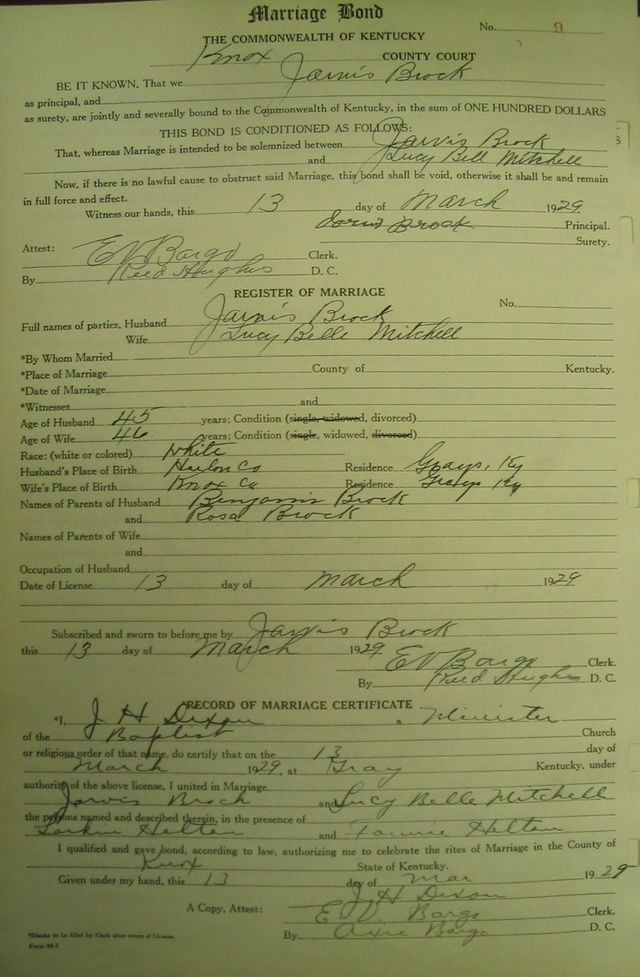 Marriage Bond
No. 9
THE COMMONWEALTH OF KENTUCKY
Knox COUNTY COURT
BE IT KNOWN, That we Jarvis Brock
as principal, and
as surety, are jointly and severally bound to the Commonwealth of Kentucky, in the sum of ONE HUNDRED DOLLARS
THIS BOND IS CONDITIONED AS FOLLOWS:
That, whereas Marriage is intended to be solemnized between Jarvis Brock
and Lucy Bell Mitchell
Now, if there is no lawful cause to obstruct said Marriage, this bond shall be void, otherwise it shall be and remain
in full force and effect.
Witness our hands, this 13 day of March 1929
Brock Principal.
Surety.
Attest: EV Bargo Clerk.
By Reed Hughes D. C.
REGISTER OF MARRIAGE
No.
Full names of parties, Husband Jarvis Brock
Wife Lucy Belle Mitchell
*By Whom Married
*Place of Marriage County of Kentucky.
*Date of Marriage
*Witnesses and
Age of Husband 45 years; Condition (single, widowed, divorced)
Age of Wife 46 years; Condition (single, widowed, divorced)
Race: (white or colored) White
Husband's Place of Birth Harlan Co Residence Grays, Ky
Wife's Place of Birth Knox Co Residence Grays Ky
Names of Parents of Husband Benjamin Brock
and Rosa Brock
Names of Parents of Wife
and
Occupation of Husband
Date of License 13 day of March 1929
Subscribed and sworn to before me by Jarvis Brock
this 13 day of March 1929
EV Bargo Clerk.
By Reed Hughes D. C.
RECORD OF MARRIAGE CERTIFICATE
*I, J H Dixon a Minister
of the Baptist Church
or religious order of that name, do certify that on the 13 day of
March 1929, at Gray Kentucky, under
authority of the above license, I united in Marriage
Jarvis Brock and Lucy Belle Mitchell
the persons named and described therein, in the presence of
Larkin Helton and Fannie Helton
I qualified and gave bond, according to law, authorizing me to celebrate the rites of Marriage in the County of
Knox State of Kentucky.
Given under my hand, this 13 day of Mar 1929
J H Dixon
A Copy, Attest: E. V. Bargo Clerk.
By Bargo D. C.
*Blanks to be filled by Clerk after return of License.